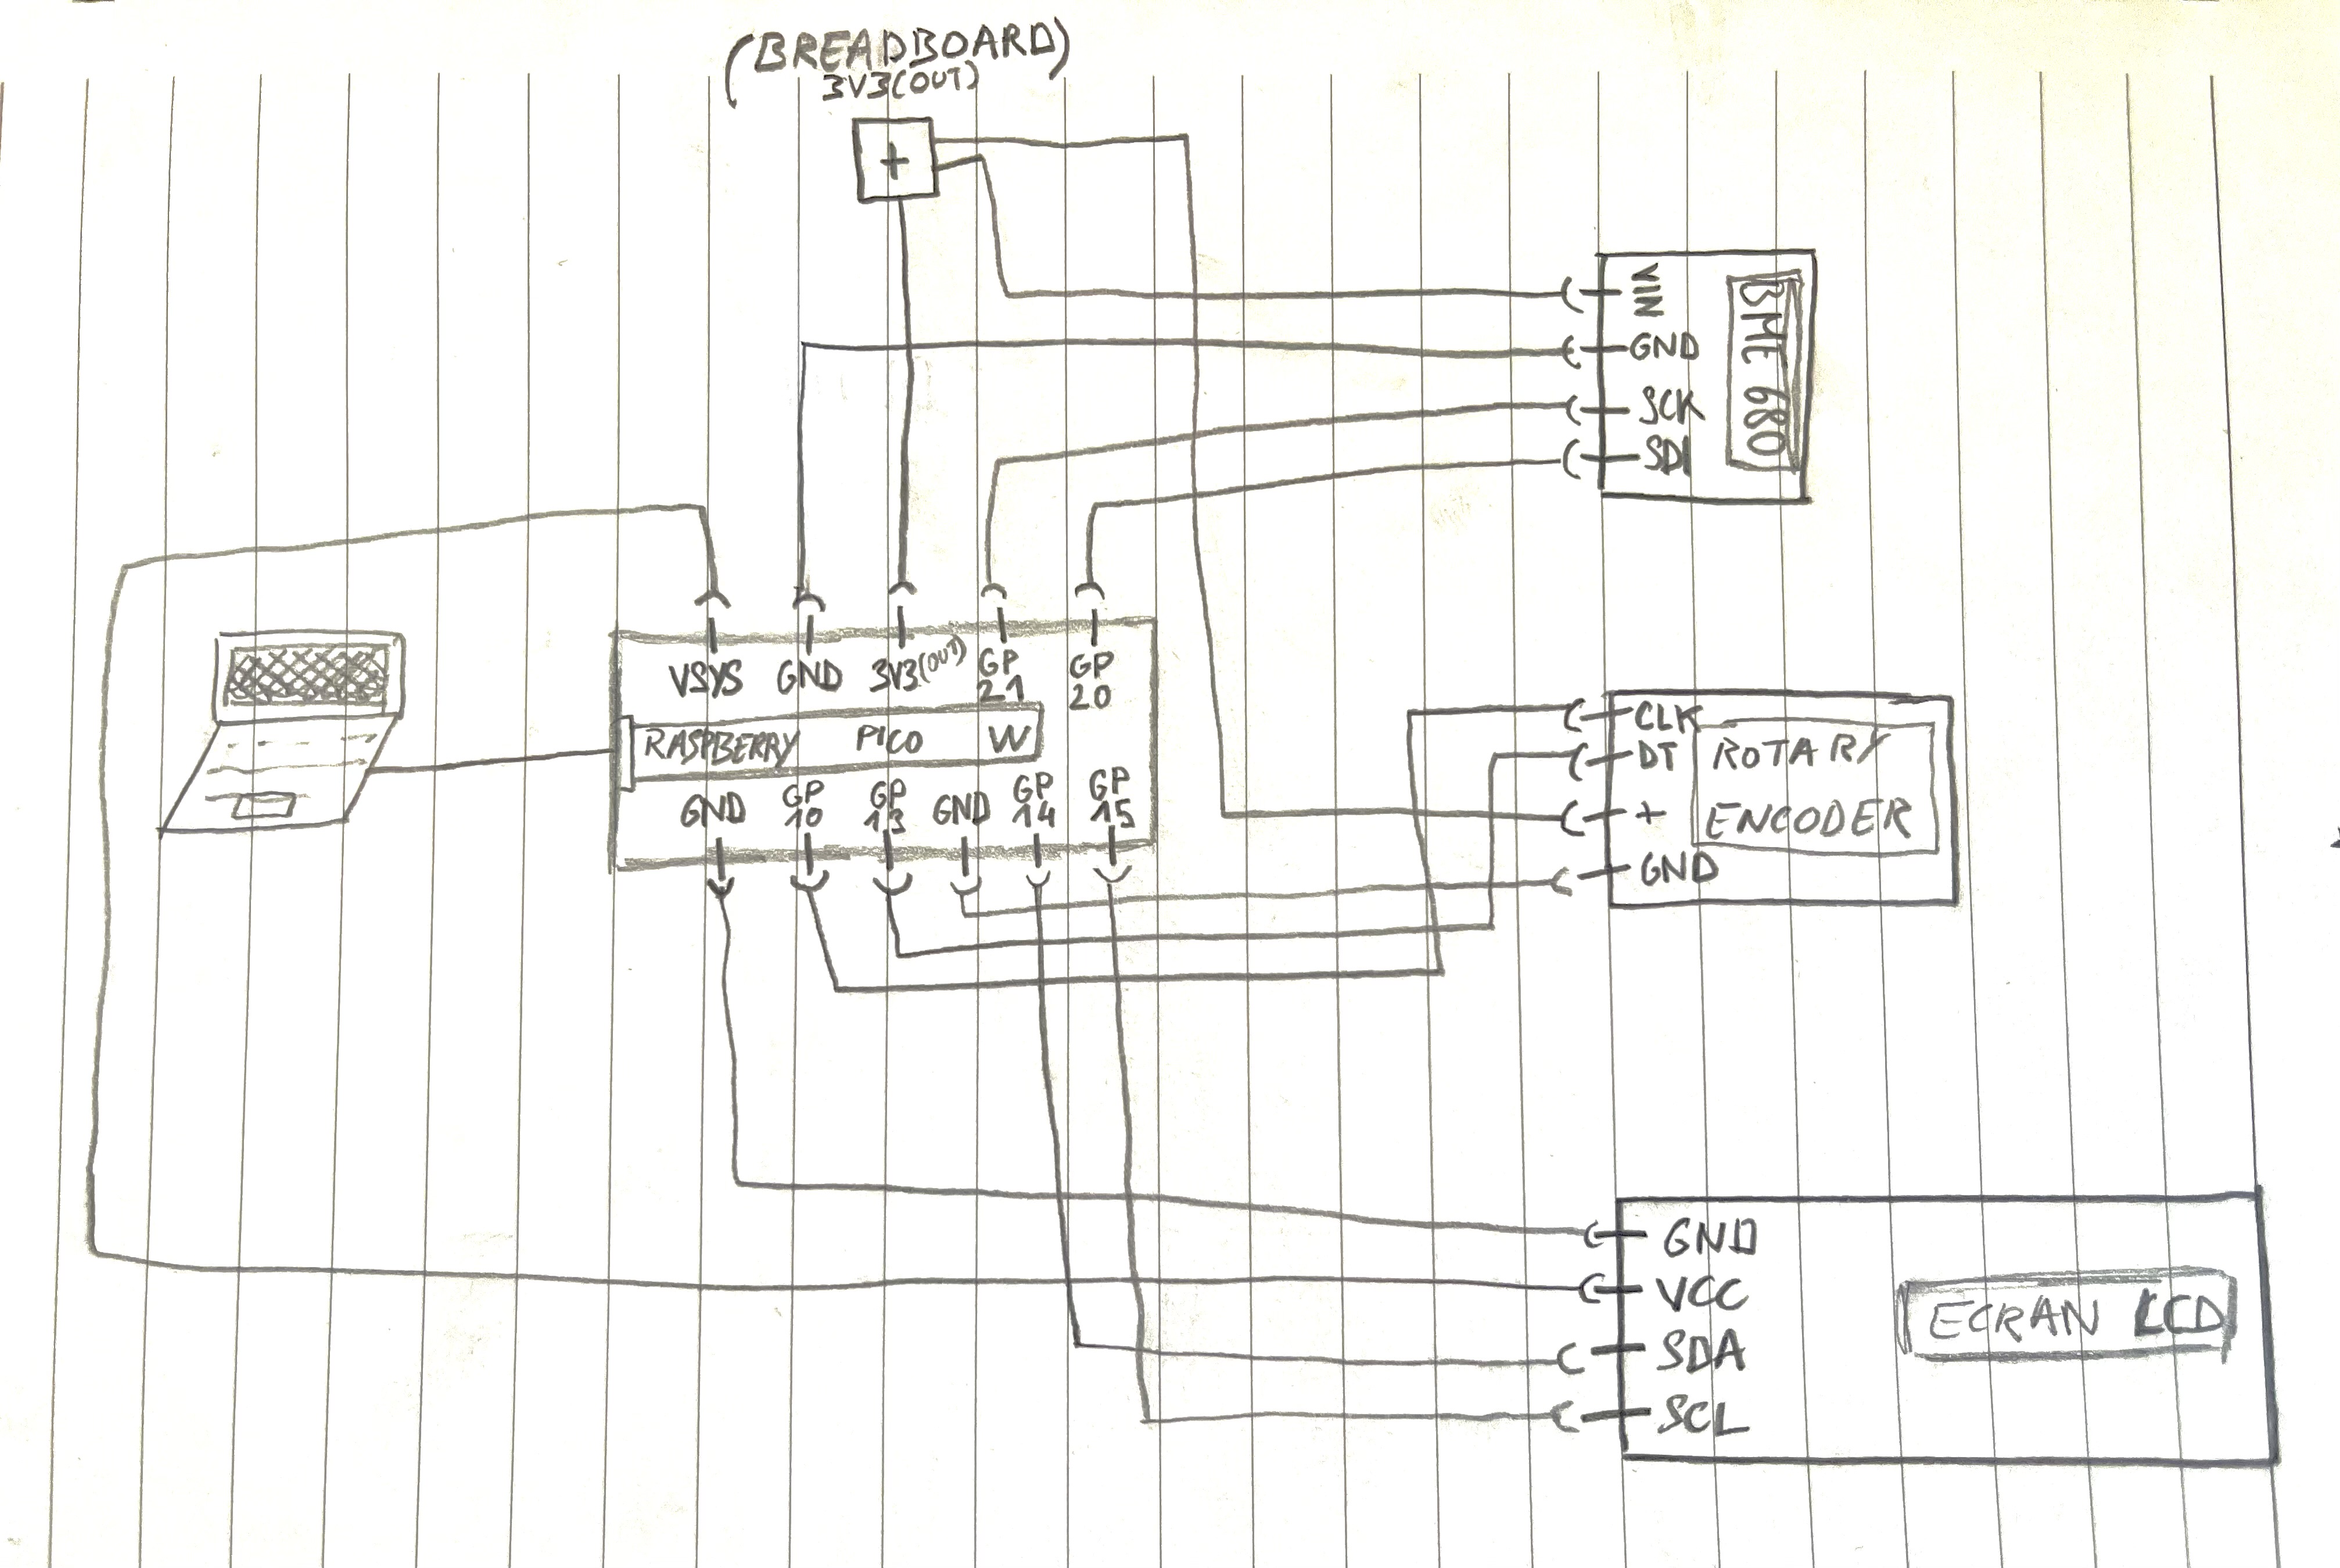 (BREADBOARD)
3V3(OUT)
+
VIN
GND
SCK
SDI
BME 680
VSYS GND 3V3(OUT) GP 21 GP 20
RASPBERRY PICO W
GND GP 10 GP 13 GND GP 14 GP 15
CLK
DT
+
GND
ROTARY
ENCODER
GND
VCC
SDA
SCL
ECRAN LCD